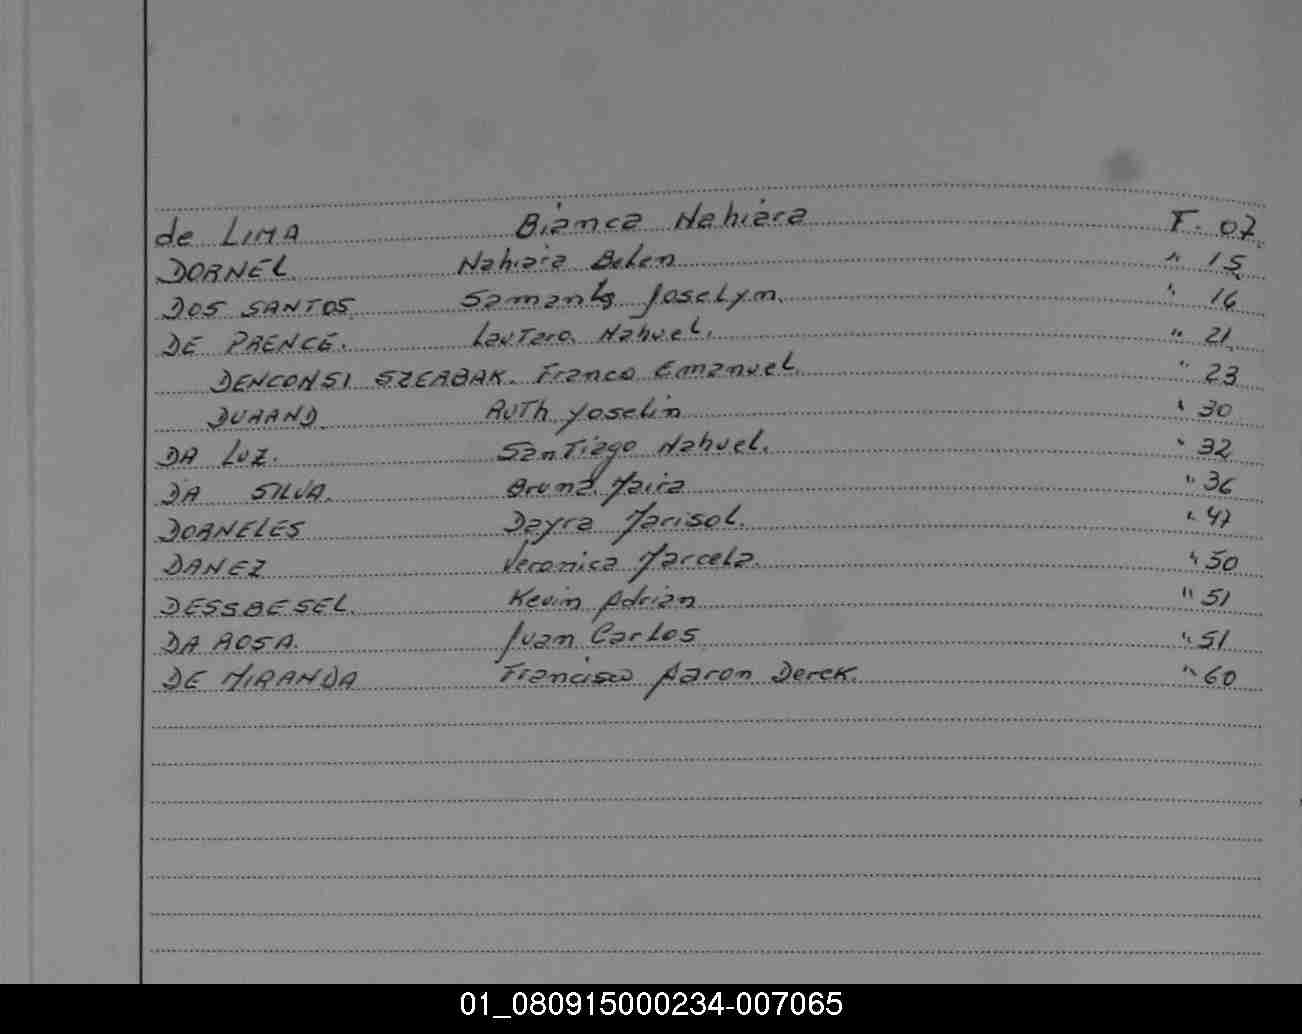 de LIMA Bianca Nahiara F. 07
DORNEL Nahiara Belen " 15
DOS SANTOS Samanta Joselyn. " 16
DE PRENCE. Lautaro Nahuel. " 21
DENCONSI SZERBAK. Franco Emanuel " 23
DURAND Ruth Yoselin " 30
DA LUZ. Santiago Nahuel. " 32
DA SILVA. Bruna Maira " 36
DORNELES Dayra Marisol. " 47
DANEZ Veronica Marcela. " 50
DESSBESEL. Kevin Adrian " 51
DA ROSA. Juan Carlos " 51
DE MIRANDA Francisco Aaron Derek. " 60
01_080915000234-007065